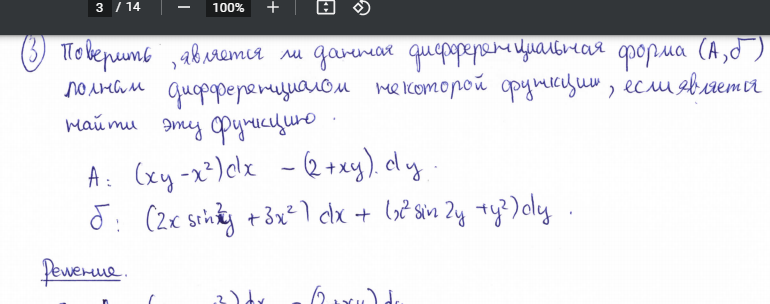 3 / 14 — 100% +
③ Поверить, является ли данная дифференциальная форма (А, б)
полным дифференциалом некоторой функции, если является
найти эту функцию.
А: (xy - x²)dx - (2 + xy). dy.
б: (2x sin²y + 3x²) dx + (x² sin 2y + y²) dy.
Решение.